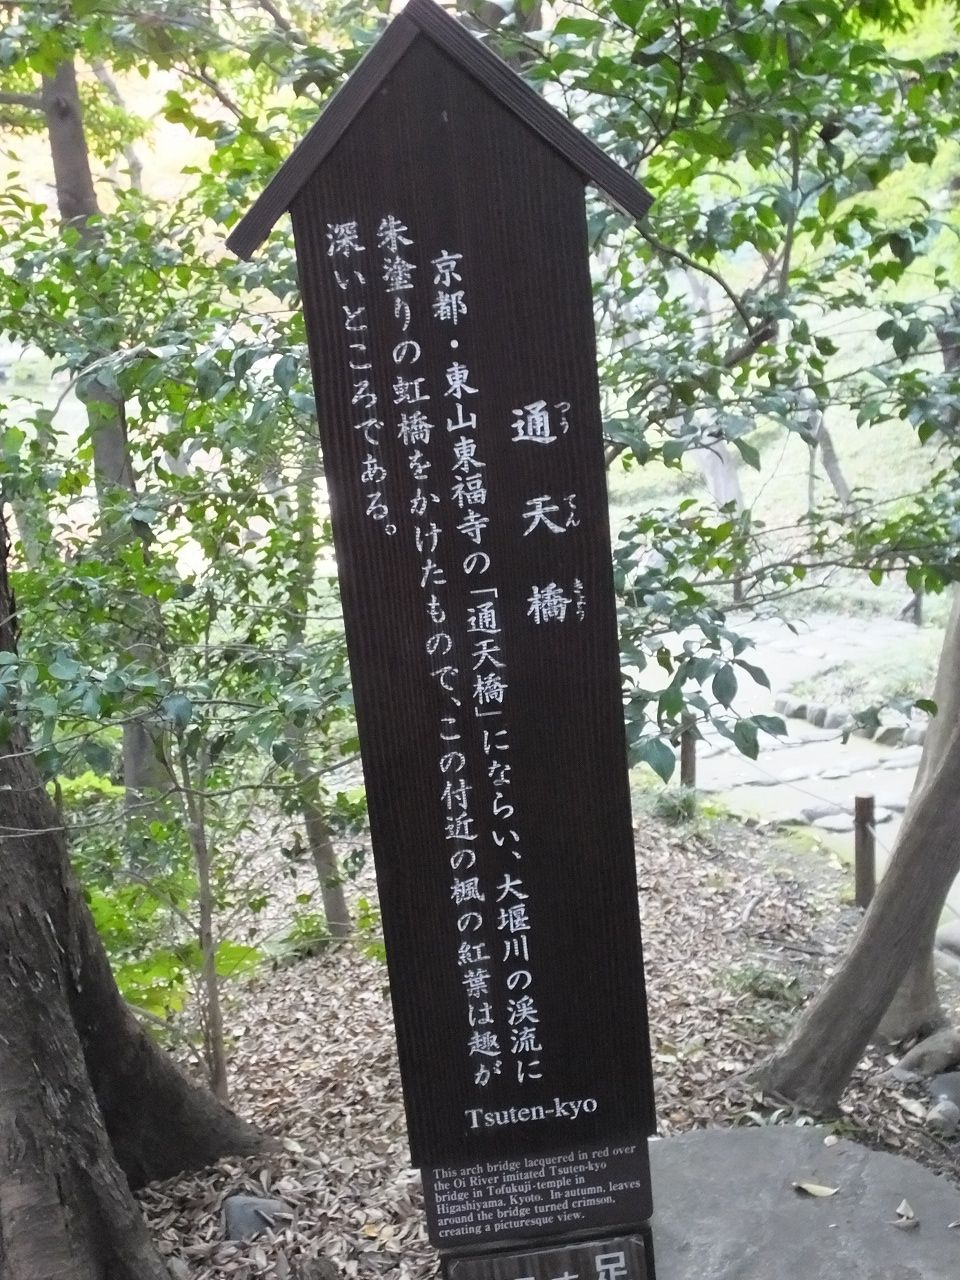 通天橋
つうてんきょう
京都・東山東福寺の「通天橋」にならい、大堰川の渓流に
朱塗りの虹橋をかけたもので、この付近の楓の紅葉は趣が
深いところである。
Tsuten-kyo
This arch bridge lacquered in red over
the Oi River imitated Tsuten-kyo
bridge in Tofukuji-temple in
Higashiyama, Kyoto. In autumn, leaves
around the bridge turned crimson,
creating a picturesque view.
足